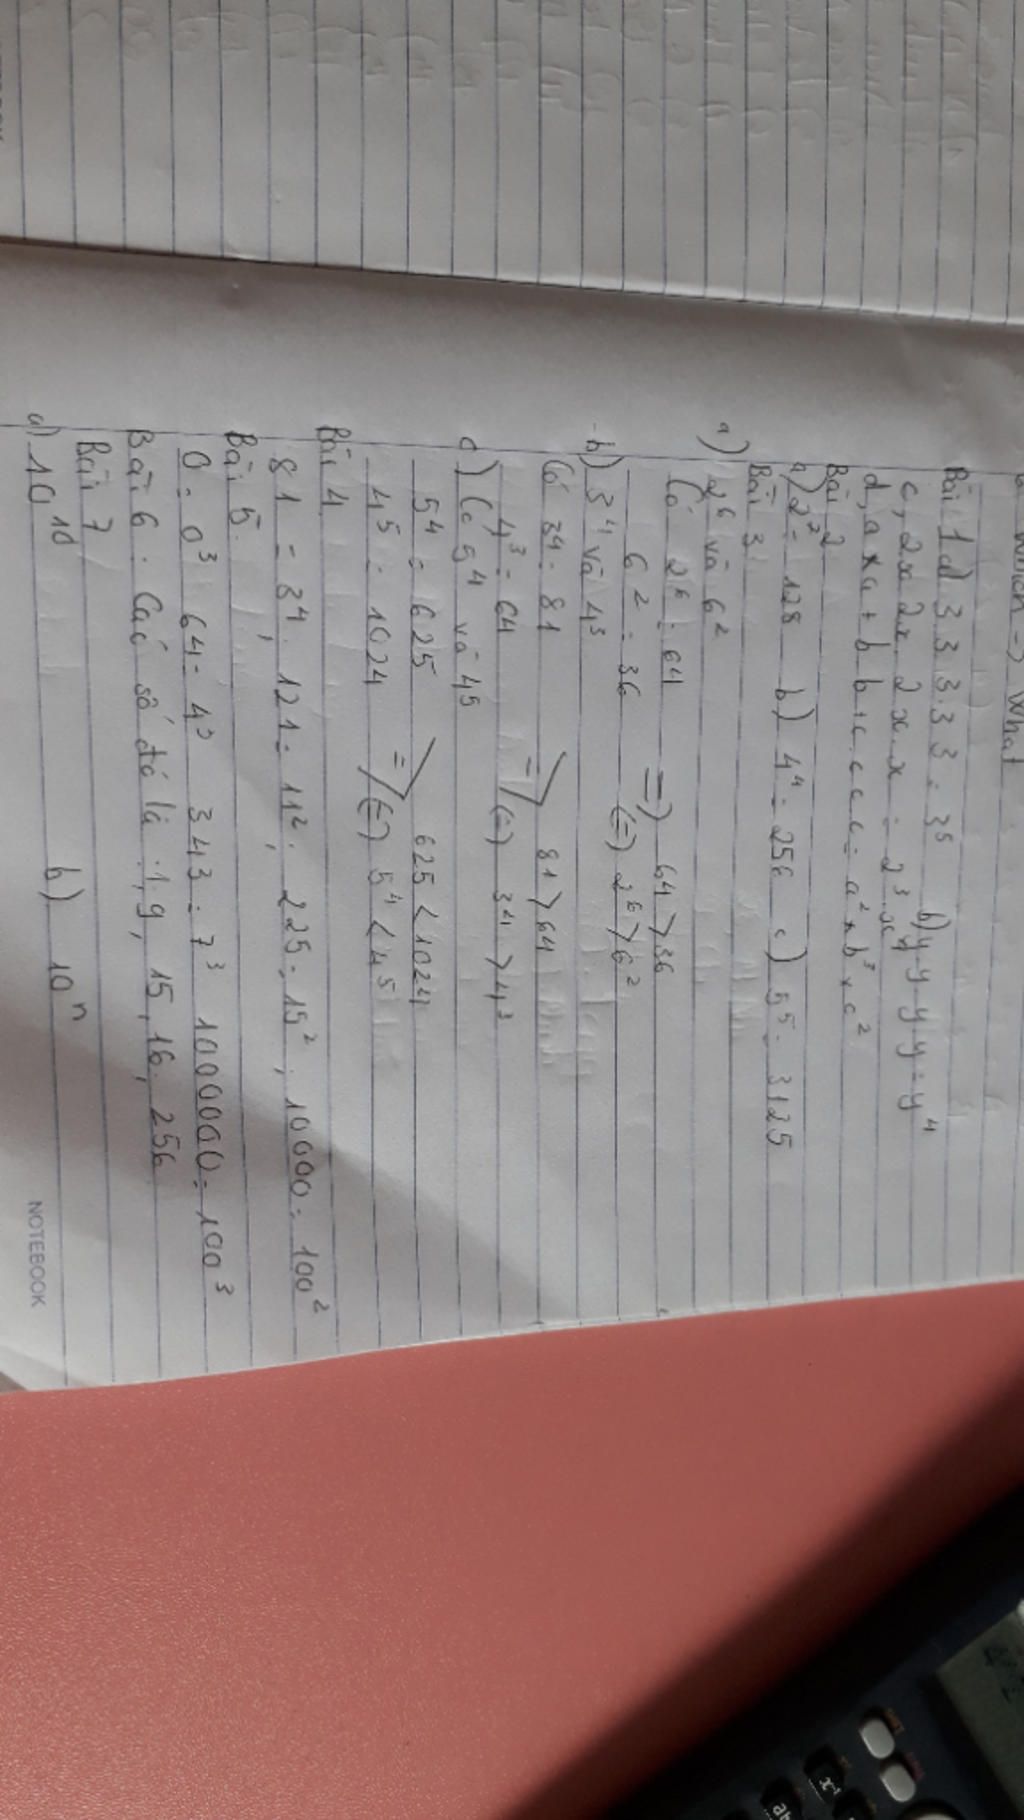 which => What
Bài 1 a) 3.3.3.3.3 = 3⁵ b) y y y y = y⁴
c, 2 x 2 x . 2 x . x = 2³ x⁴
d, a x a + b b + c . c . c = a² x b³ + c²
Bài 2
a) 2⁷ = 128 b) 4⁴ = 256 c) 5⁵ = 3125
Bài 3
a) 2⁶ và 6²
Có 2⁶ = 64 => 64 > 36
6² = 36 (=) 2⁶ > 6²
b) 3⁴ và 4³
Có 3⁴ = 81 => 81 > 64
4³ = 64 (=) 3⁴ > 4³
c) Có 5⁴ và 4⁵
5⁴ = 625 => 625 < 1024
4⁵ = 1024 (=) 5⁴ < 4⁵
Bài 4
81 = 3⁴, 121 = 11², 225 = 15², 10000 = 100²
Bài 5
0 = 0³ 64 = 4³ 343 = 7³ 1000000 = 100³
Bài 6: Các số đó là: 1, 9, 15, 16, 256
Bài 7
a) 10¹⁰ b) 10ⁿ
NOTEBOOK